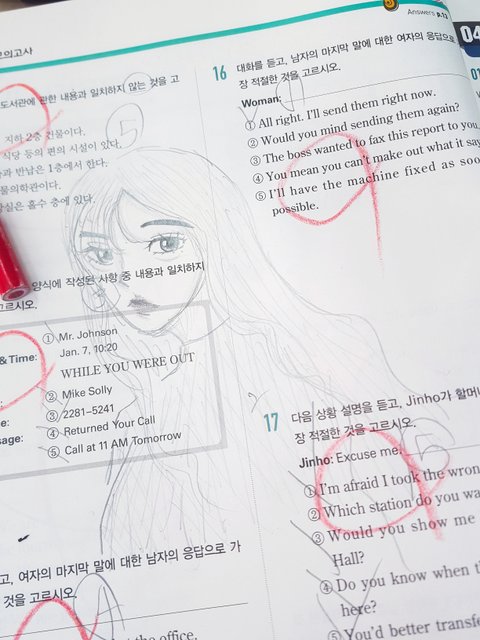 Answers p.12
모의고사
04
도서관에 관한 내용과 일치하지 않는 것을 고
지하 2층 건물이다.
식당 등의 편의 시설이 있다.
반납은 1층에서 한다.
물의학관이다.
실은 홀수 층에 있다.
5
양식에 작성된 사항 중 내용과 일치하지
고르시오.
& Time:
① Mr. Johnson
Jan. 7, 10:20
WHILE YOU WERE OUT
② Mike Solly
③ 2281-5241
④ Returned Your Call
⑤ Call at 11 AM Tomorrow
고, 여자의 마지막 말에 대한 남자의 응답으로 가
것을 고르시오.
the office.
16 대화를 듣고, 남자의 마지막 말에 대한 여자의 응답으로
장 적절한 것을 고르시오.
Woman:
① All right. I'll send them right now.
② Would you mind sending them again?
③ The boss wanted to fax this report to you.
④ You mean you can't make out what it say
⑤ I'll have the machine fixed as soo
possible.
17 다음 상황 설명을 듣고, Jinho가 할머
장 적절한 것을 고르시오.
Jinho: Excuse me. 5
① I'm afraid I took the wron
② Which station do you wa
③ Would you show me
Hall?
④ Do you know when t
here?
⑤ You'd better transf